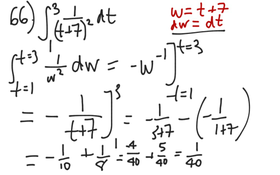 66) ∫₁³ 1/(t+7)² dt
w = t+7
dw = dt
∫_{t=1}^{t=3} 1/w² dw = -w⁻¹]_{t=1}^{t=3}
= -1/(t+7)]₁³ = -1/(3+7) - (-1/(1+7))
= -1/10 + 1/8 = -4/40 + 5/40 = 1/40